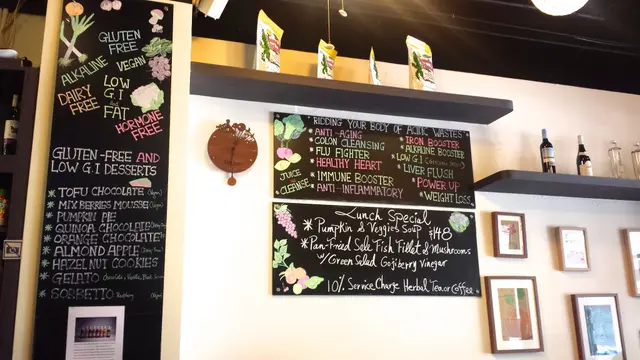 GLUTEN
FREE
ALKALINE
VEGAN
DAIRY
FREE
LOW
G.I
FAT
HORMONE
FREE
GLUTEN-FREE AND
LOW G.I DESSERTS
* TOFU CHOCOLATE
* MIX BERRIES MOUSSE
* PUMPKIN PIE
* QUINOA CHOCOLATE
* ORANGE CHOCOLATE
* ALMOND APPLE
* HAZELNUT COOKIES
* GELATO
* SORBETTO
RIDDING YOUR BODY OF ACIDIC WASTES
* ANTI-AGING
* COLON CLEANSING
* FLU FIGHTER
* HEALTHY HEART
* IMMUNE BOOSTER
* ANTI-INFLAMMATORY
* IRON BOOSTER
* ALKALINE BOOSTER
* LOW G.I
* LIVER FLUSH
* POWER UP
* WEIGHT LOSS
JUICE
CLEANSE
Lunch Special
* Pumpkin & Veggies Soup $148
* Pan-Fried Sole Fish Fillet & Mushrooms
w/ Green Salad Gojiberry Vinegar
10% Service Charge Herbal Tea or Coffee